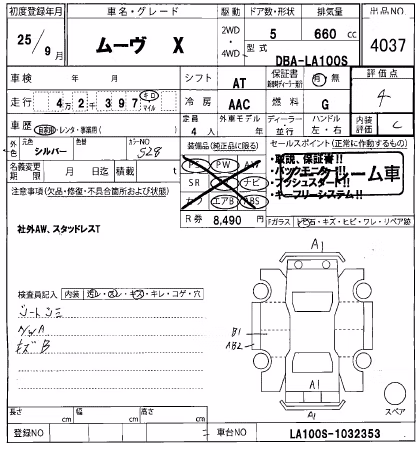 初度登録年月 車名・グレード 駆動 ドア数・形状 排気量 出品NO
25/9月 ムーヴ X 2WD・4WD 5 660cc 4037
型式 DBA-LA100S
車検 年 月 シフト AT 保証書 有・無 評価点 4
走行 4万2千397 キロ マイル 冷房 AAC 燃料 G
車歴 自家用・レンタ・事業用( ) 定員 4人 外車モデル 年 ディーラー・並行 ハンドル 左・右 内装評価 C
外色 元色 シルバー 色替 カラーNO S28
装備品(純正品に限る) PS PW AW SR ナビ カワ エアB ABS
セールスポイント(正常に作動するもの)
・取説、保証書!!
・バックモニター!!
・プッシュスタート!!
・キーフリーシステム!!
クレーム車
名義変更期限 月 日迄 積載 t
注意事項(欠品・修復・不具合箇所および状態)
R券 8,490円
Fガラス トビ石・キズ・ヒビ・ワレ・リペア跡
社外AW、スタッドレスT
検査員記入 内装 汚レ・スレ・キズ・キレ・コゲ・穴
シートシミ
ハンドルA
キズB
A1
B1
AB2
A1
A1
スペア
長さ cm 幅 cm 高さ cm
登録NO 車台NO LA100S-1032353